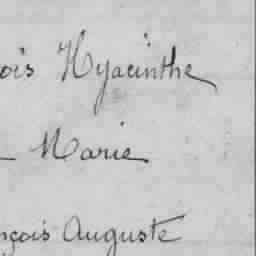 ois Hyacinthe
Marie
nçois Auguste